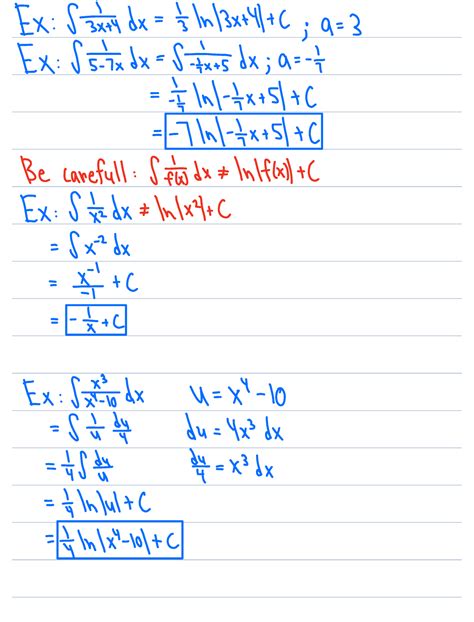 Ex: ∫ 1/(3x+4) dx = 1/3 ln|3x+4| + C ; a=3
Ex: ∫ 1/(5-7x) dx = ∫ 1/(-1/7x+5) dx ; a=-1/7
= 1/(-1/7) ln|-1/7x+5| + C
= -7 ln|-1/7x+5| + C
Be carefull: ∫ 1/f(x) dx ≠ ln|f(x)| + C
Ex: ∫ 1/x² dx ≠ ln|x²| + C
= ∫ x⁻² dx
= x⁻¹/-1 + C
= -1/x + C
Ex: ∫ x³/(x⁴-10) dx u = x⁴-10
= ∫ 1/u du/4 du = 4x³ dx
= 1/4 ∫ du/u du/4 = x³ dx
= 1/4 ln|u| + C
= 1/4 ln|x⁴-10| + C